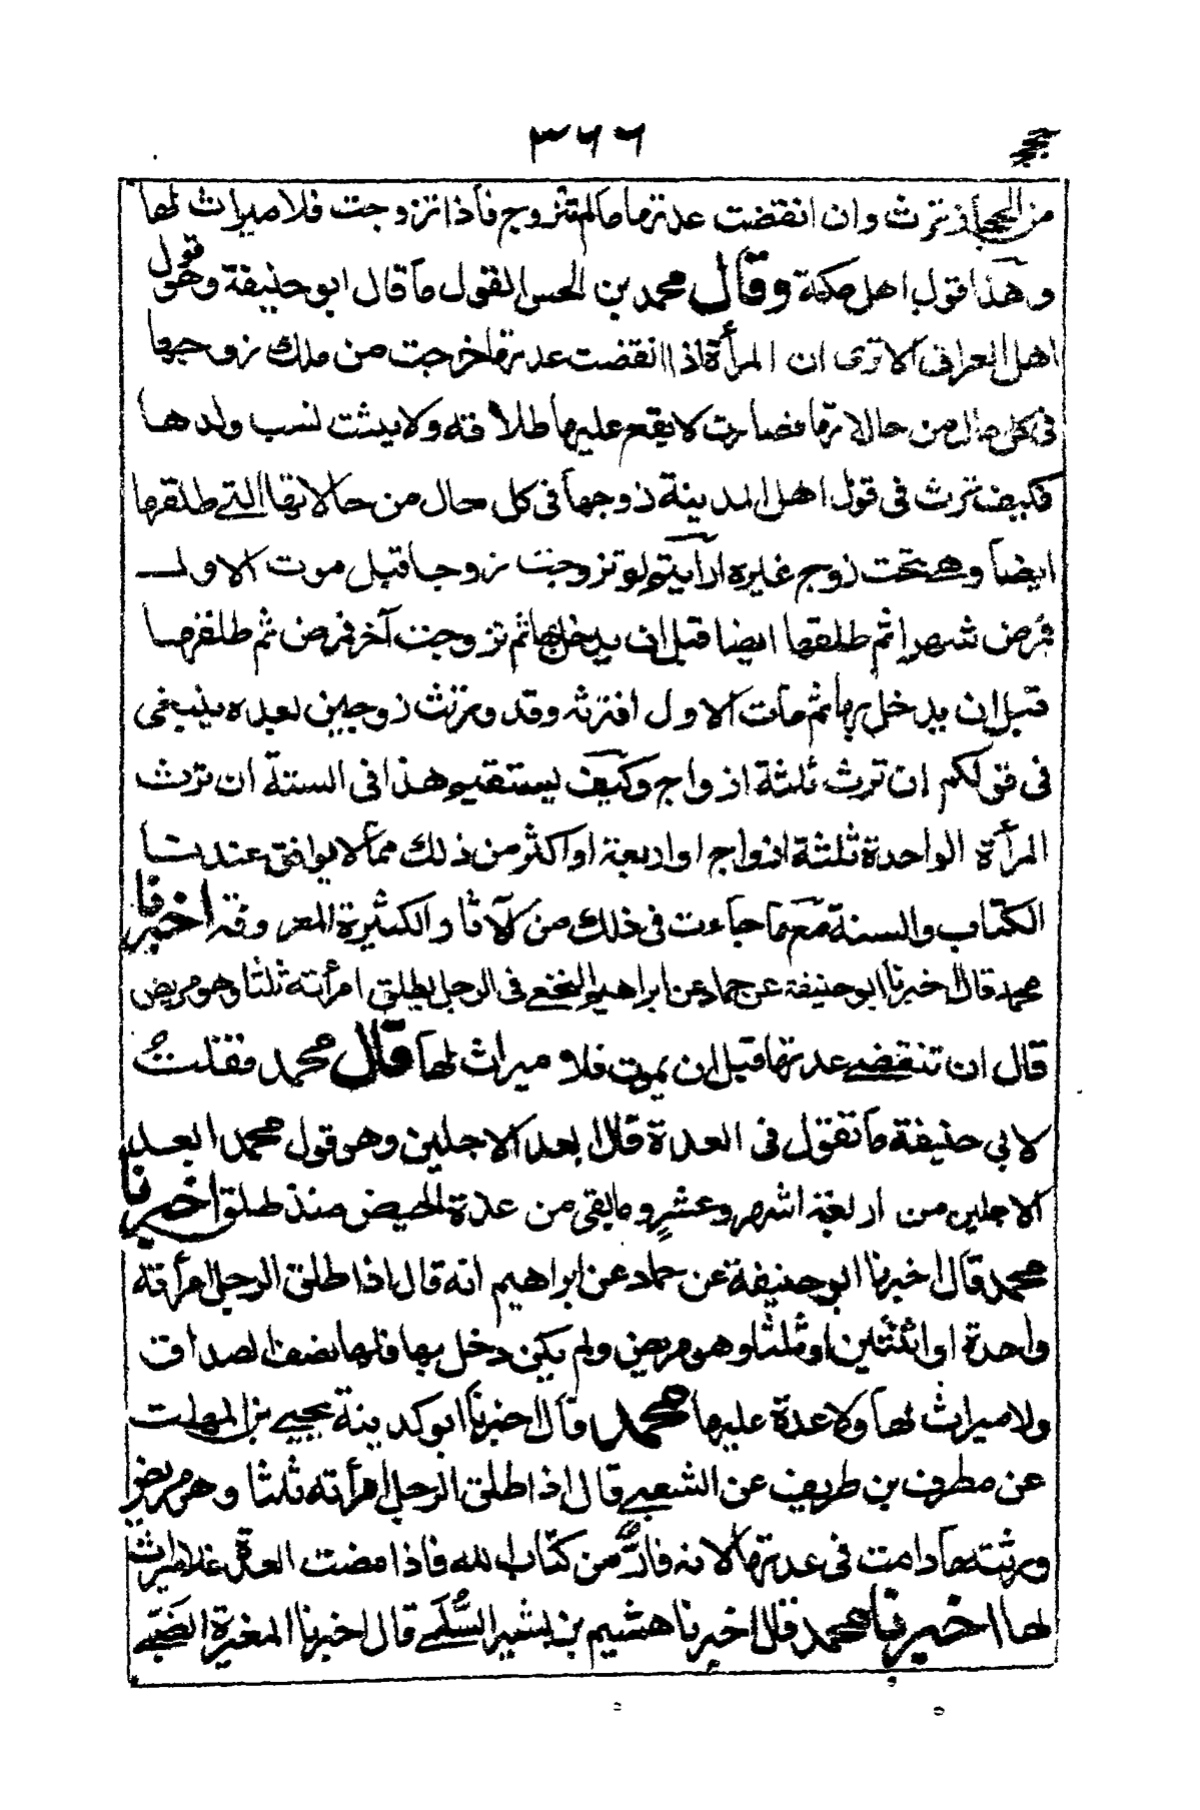 ٣٦٦
من الحجاز ترث وان انقضت عدتها مالم تتزوج فاذا تزوجت فلا ميراث لها
وهذا قول اهل مكة وقال محمد بن الحسن القول ما قال ابو حنيفة وهو قول
اهل العراق الا ترى ان المرأة اذا انقضت عدتها خرجت من ملك زوجها
فى كل حال من حالاتها فصارت لا يقع عليها طلاقه ولا يثبت نسب ولدها
فكيف ترث فى قول اهل المدينة زوجها فى كل حال من حالاتها التى طلقها
ايضا وهى تحت زوج غيره ارأيتم لو تزوجت زوجا قبل موت الاول
فمرض شهرا ثم طلقها ايضا قبل ان يدخل بها ثم تزوجت آخر فمرض ثم طلقها
قبل ان يدخل بها ثم مات الاول افترثه وقد ورثت زوجين بعده ينبغى
فى قولكم ان ترث ثلثة ازواج وكيف يستقيم هذا فى السنة ان ترث
المرأة الواحدة ثلثة ازواج او اربعة او اكثر من ذلك مما لا يوافق عندنا
الكتاب والسنة مع ما جاءت فى ذلك من الآثار الكثيرة المعروفة اخبرنا
محمد قال اخبرنا ابو حنيفة عن حماد عن ابراهيم النخعى فى الرجل يطلق امرأته ثلثا وهو مريض
قال ان تنقضى عدتها قبل ان يموت فلا ميراث لها قال محمد فقلتُ
لابى حنيفة ما تقول فى العدة قال ابعد الاجلين وهو قول محمد ابعد
الاجلين من اربعة اشهر وعشرٍ وما بقى من عدة الحيض منذ طلق اخبرنا
محمد قال اخبرنا ابو حنيفة عن حماد عن ابراهيم انه قال اذا طلق الرجل امرأته
واحدة او اثنتين او ثلثا وهو مريض ولم يكن دخل بها فلها نصف الصداق
ولا ميراث لها ولا عدة عليها محمد قال اخبرنا ابو كدينة يحيى بن المهلب
عن مطرف بن طريف عن الشعبى قال اذا طلق الرجل امرأته ثلثا وهو مريض
ورثته ما دامت فى عدتها لانه فارٌّ من كتاب الله فاذا مضت العدة فلا ميراث
لها اخبرنا محمد قال اخبرنا هشيم بن بشير السُّلَمى قال اخبرنا المغيرة الضَبّى